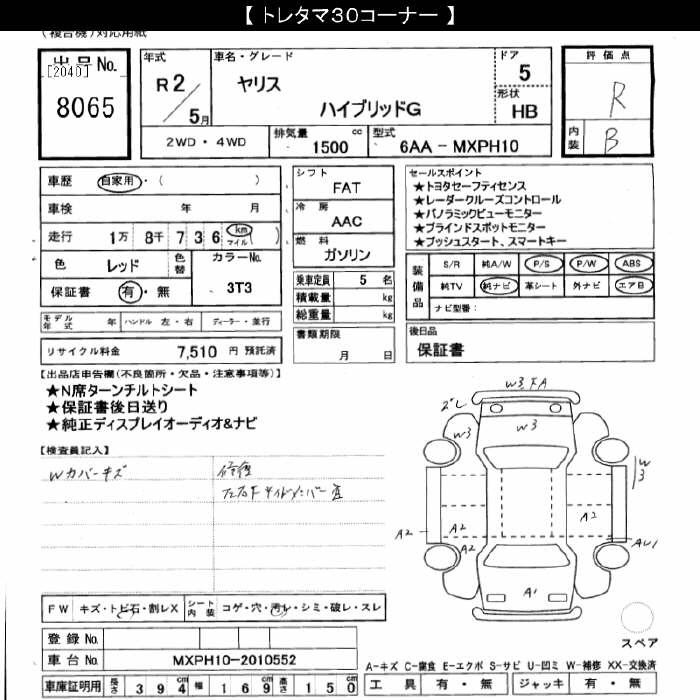 【トレタマ30コーナー】
(複合機)対応用紙
出品No. [2040] 8065
年式 R2/5月
車名・グレード ヤリス
ハイブリッドG
ドア 5
形状 HB
評価点 R
内装 B
2WD・4WD
排気量 1500 cc
型式 6AA-MXPH10
車歴 自家用・( )
車検 年 月
走行 1万 8千 7 3 6 km マイル( )
色 レッド
色替
カラーNo. 3T3
保証書 有・無
シフト FAT
冷房 AAC
燃料 ガソリン
乗車定員 5 名
積載量 kg
総重量 kg
書類期限 月 日
セールスポイント
★トヨタセーフティセンス
★レーダークルーズコントロール
★パノラミックビューモニター
★ブラインドスポットモニター
★プッシュスタート、スマートキー
装備品 S/R 純A/W P/S P/W ABS
純TV 純ナビ 革シート 外ナビ エアB
ナビ型番:
モデル年式 年 ハンドル 左・右 ディーラー・並行
リサイクル料金 7,510 円 預託済
後日品
保証書
【出品店申告欄(不良箇所・欠品・注意事項等)】
★N席ターンチルトシート
★保証書後日送り
★純正ディスプレイオーディオ&ナビ
【検査員記入】
Wカバーキズ
修復
W3 FA
W3
W3
W3
A2
A2
A2
A2
A1
FW キズ・トビ石・割レX
シート内装 コゲ・穴・汚レ・シミ・破レ・スレ
登録No.
車台No. MXPH10-2010552
車庫証明用 長さ 394cm 幅 169cm 高さ 150cm
スペア
A-キズ C-腐食 E-エクボ S-サビ U-凹ミ W-補修 XX-交換済
工具 有・無 ジャッキ 有・無